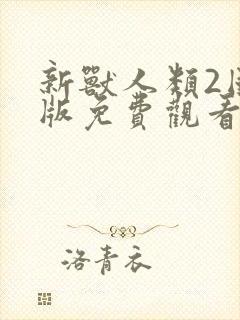 新獸人類2
版免費觀看
洛青衣